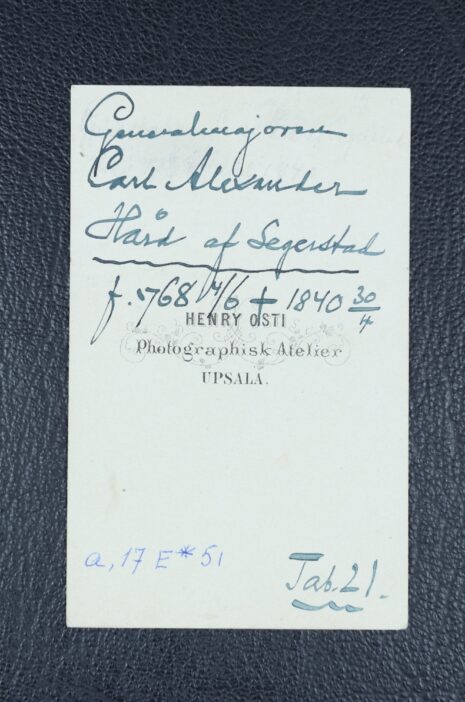 Generalmajoren
Carl Alexander
Hård af Segerstad
f. 1768 14/6 + 1840 30/4
HENRY OSTI
Photographisk Atelier
UPSALA.
a, 17 E* 51
Tab. 21.